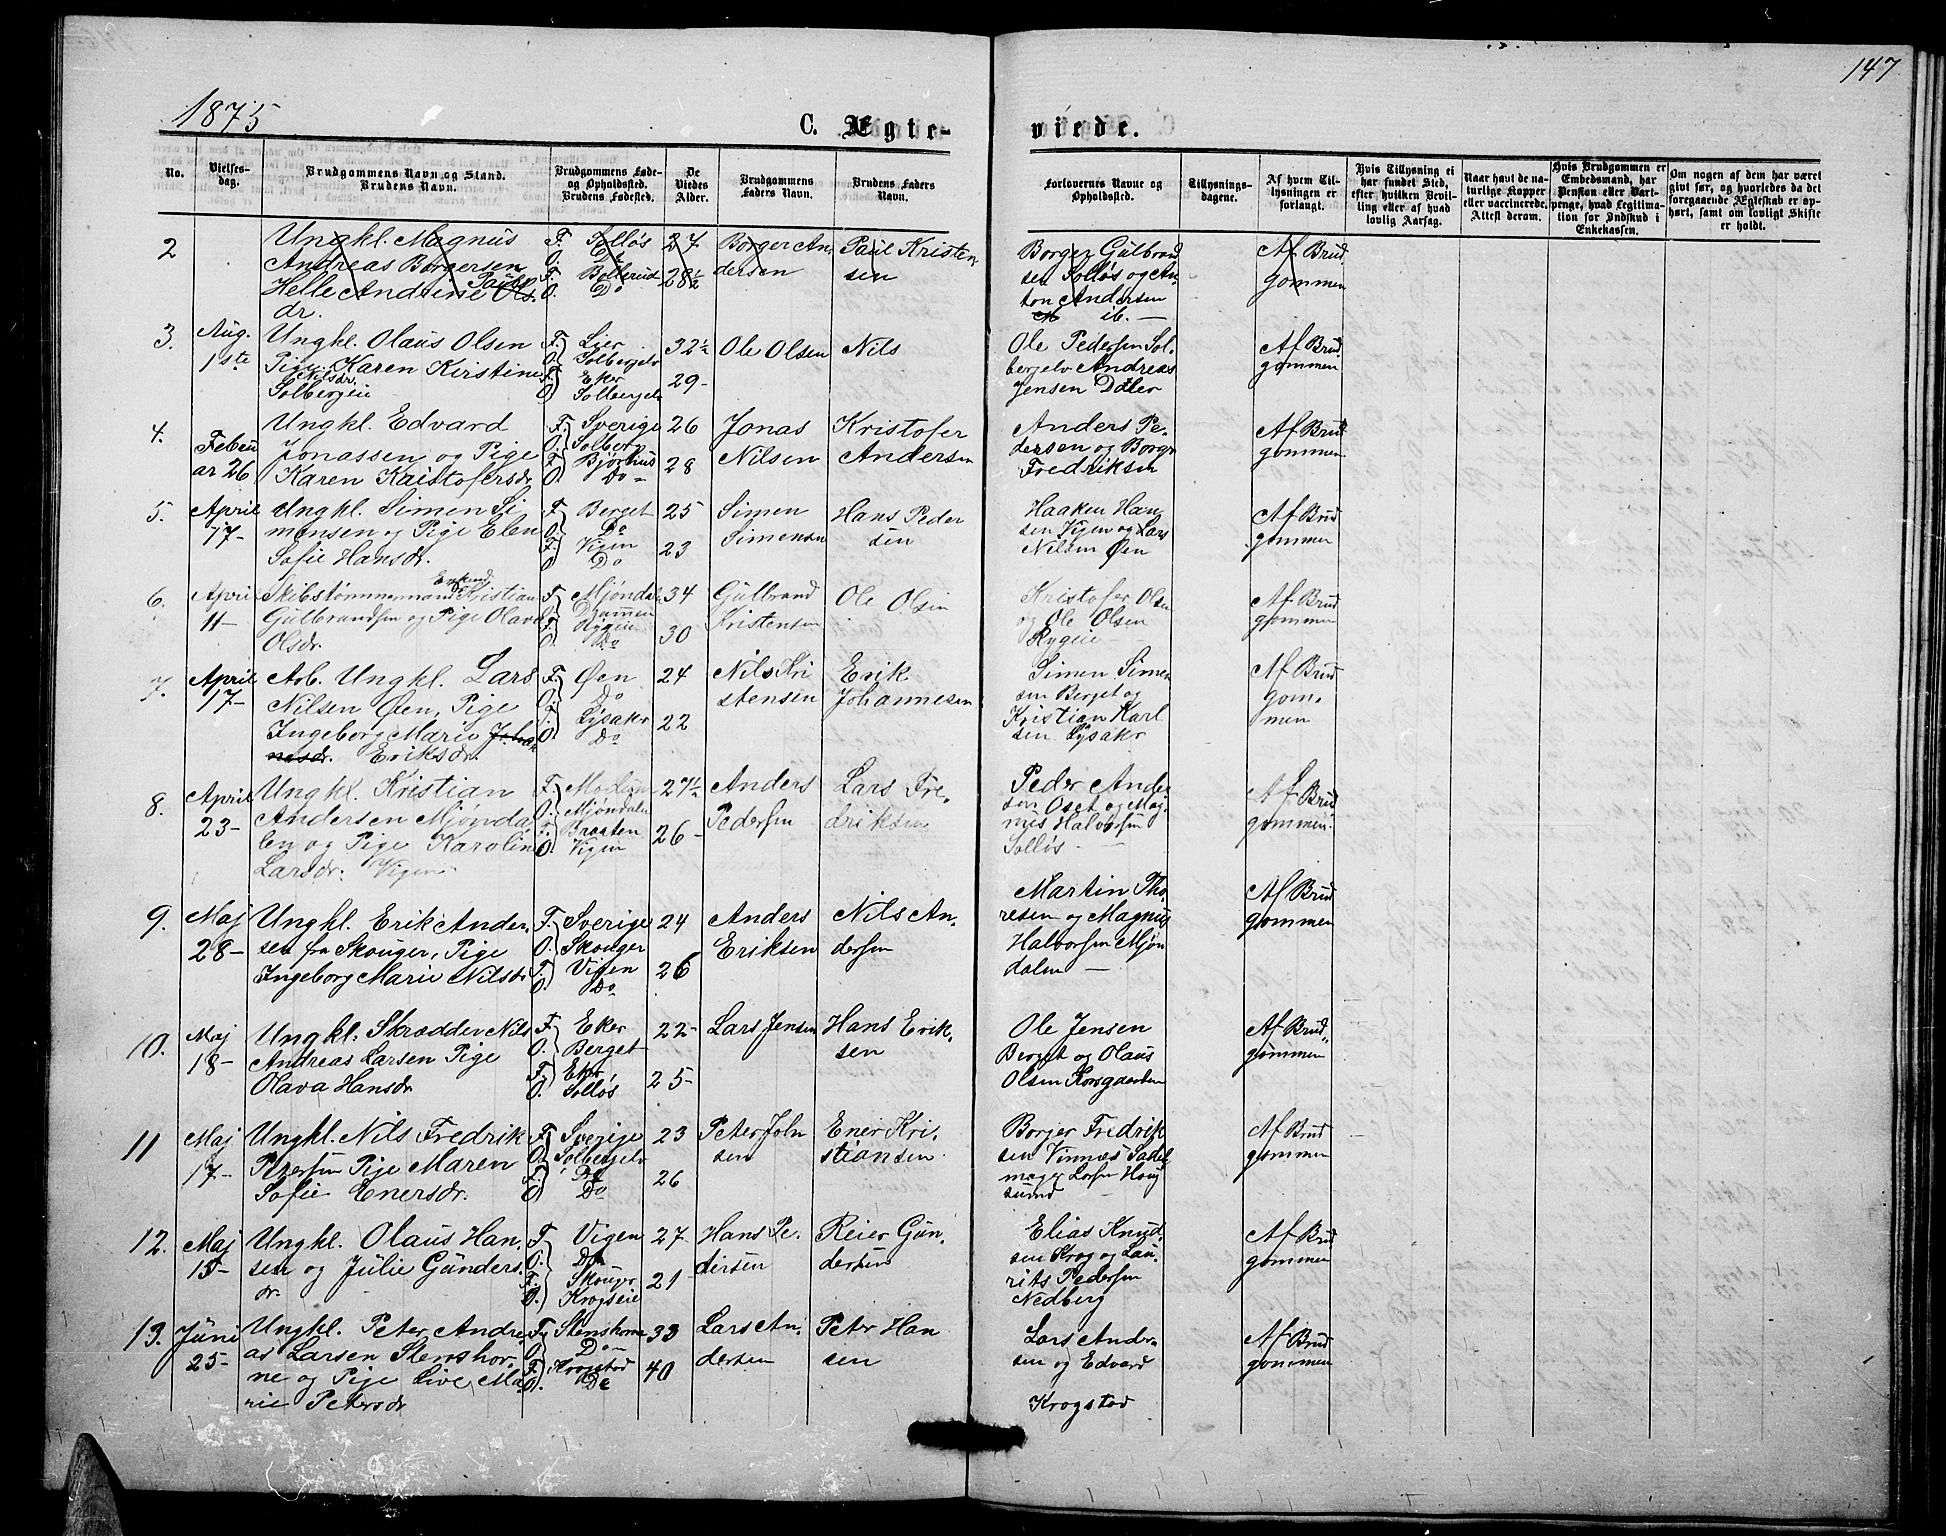 147
1875
C. Ægte-
viede.
No.
Vielses-
dag.
Brudgommens Navn og Stand.
Brudens Navn.
Brudgommens Føde-
og Opholdssted.
Brudens Fødested.
De
Viedes
Alder.
Brudgommens
Faders Navn.
Brudens Faders
Navn.
Forlovernes Navne og
Opholdssted.
Tillysnings-
dagene.
Af hvem Til-
lysningen er
forlangt.
Hvis Tillysning ei
har fundet Sted,
efter hvilken Bevil-
ling eller af hvad
lovlig Aarsag.
Naar havt de na-
turlige Kopper
eller vaccinerede.
Attest derom.
Hvis Brudgommen er
Embedsmand, har
Pension eller Vart-
penge, hvad Legitima-
tion for Indskud i
Enkekassen.
Om nogen af dem har været
givt før, og hvorledes da det
foregaaende Ægteskab er op-
hørt, samt om lovligt Skifte
er holdt.
2
Ungkl. Magnus
Andreas Borgersen
Helle Andrine Ols-
Pauls
dr.
F. Solløs
O. Do
F. Bollerud
O. Do
27
28½
Borger An-
dersen
Paul Kristen-
sen
Borger Gulbrand
sen Solløs og An-
ton Andersen
ib. —
Af Brud
gommen
3.
Aug.
1ste
Ungkl. Olaus Olsen
Pige Karen Kirstine
Nilsdr.
Solbergeie
F. Lier
O. Solbergelv
F. Eker
O. Solbergelv
32½
29-
Ole Olsen
Nils
Ole Pedersen Sol-
bergelv Andreas
Jensen Daler
Af Brud
gommen
4.
Febru
ar 26
Ungkl. Edvard
Jonassen og Pige
Karen Kristofersdr
F. Sverige
O. Solberg
F. Bjørkhus
O. Do
26
28
Jonas
Nilsen
Kristofer
Andersen
Anders Pe-
dersen og Borge
Fredriksen
Af Brud
gommen
5.
April
17-
Ungkl. Simen Si
mensen og Pige Elen
Sofie Hansdr.
F. Berget
O. Do
F. Vigen
O. Do
25
23
Simen
Simensen
Hans Peder
sen
Haaken Han-
sen Vigen og Lars
Nilsen Øen
Af Brud
gommen
6.
April
11-
Skibstømmermand Enkemd Kristian
Gulbrandsen og Pige Olava
Olsdr.
F. Mjøndale
O. Drammen
F. Rygeie
O. Do
34
30
Gulbrand
Kristensen
Ole Olsen
Kristofer Olsen
og Ole Olsen
Rygeie
Af Brud
gommen
7.
April
17-
Arb. Ungkl. Lars
Nilsen Øen, Pige
Ingeborg Marie Johan
nesdr. Eriksdr.
F. Øen
O. Do
F. Lysakr
O. Do
24
22
Nils Kri
stensen
Erik
Johannesen
Simen Simen
sen Berget og
Kristian Karl
sen Lysakr
Af Brud
gom-
men
8.
April
23-
Ungkl. Kristian
Andersen Mjønda
len og Pige Karolin
Larsdr. Vigen
F. Modum
O. Mjøndale
F. Braaten
O. Vigen
27½
26-
Anders
Pedersen
Lars Fre-
driksen
Peder Ander
sen Oset og Mag
nus Halvorsen
Solløs -
Af Brud
gommen
9.
Maj
28-
Ungkl. Erik Ander-
sen fra Skouger, Pige
Ingeborg Marie Nilsdr
F. Sverige
O. Skouger
F. Vigen
O. Do
24
26
Anders
Eriksen
Nils An-
dersen
Martin Tho-
resen og Magnus
Halvorsen Mjøn
dalen —
Af Brud
gommen
10.
Maj
18-
Ungkl. Skrædder Nils
Andreas Larsen Pige
Olava Hansdr
F. Eker
O. Berget
F. Eker
O. Solløs
22-
25-
Lars Jensen
Hans Erik-
sen
Ole Jensen
Berget og Olaus
Olsen Korsgaarden
Af Brud-
gommen
11
Maj
17-
Ungkl. Nils Fredrik
Petersen Pige Maren
Sofie Enersdr.
F. Sverige
O. Solbergelv
F. Do
O. Do
23
26
Peter John
sen
Ener Kri-
stiansen
Borger Fredrik
sen Vinnæs Sadel
mager Larsen Houg
sund
Af Brud
gommen
12.
Maj
15-
Ungkl. Olaus Han-
sen og Julie Gunders-
dr.
F. Vigen
O. Do
F. Skouger
O. Krogseie
27
21-
Hans Pe-
dersen
Reier Gun-
dersen
Elias Knud-
sen Krog og Lau-
rits Pedersen
Nedberg
Af Brud
gommen
13.
Juni
25-
Ungkl. Peter Andre
as Larsen Stenshor-
ne og Pige Live Ma-
rie Petersdr
F. Stenshorne
O. Do
F. Krogstad
O. Do
33
40
Lars An-
dersen
Peter Han
sen
Lars Ander-
sen og Edvard
Krogstad
Af Brud
gommen